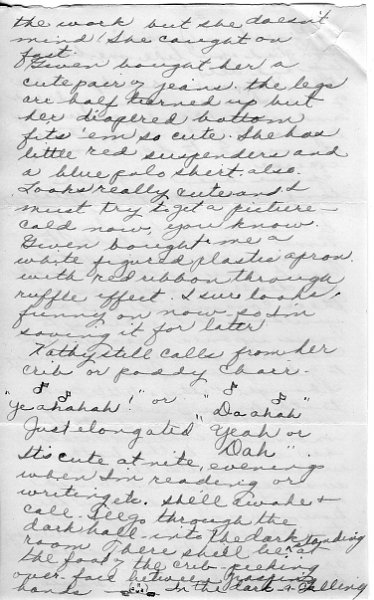 the work but she doesn't
mind! She caught on
fast.
Gwen bought her a
cute pair of jeans. the legs
are half turned up but
her diapered bottom
fits 'em so cute. She has
little red suspenders and
a blue polo shirt also.
Looks really cute and I
must try to get a picture -
cold now, you know.
Gwen bought me a
white figured plastic apron
with red ribbon through
ruffle effect. I sure looks
funny on now - so Im
saving it for later
Kathy still calls from her
crib or poddy chair.
"Yeahahah!" or "Daahah"
Just elongated Yeah or
Dah".
Its cute at nite, evenings
when Im reading or
writing etc. She'll awake &
call. I go through the
dark hall - into the dark
room There she'll be standing at
the foot of the crib - peeking
over - face between grasping
hands In the dark & calling